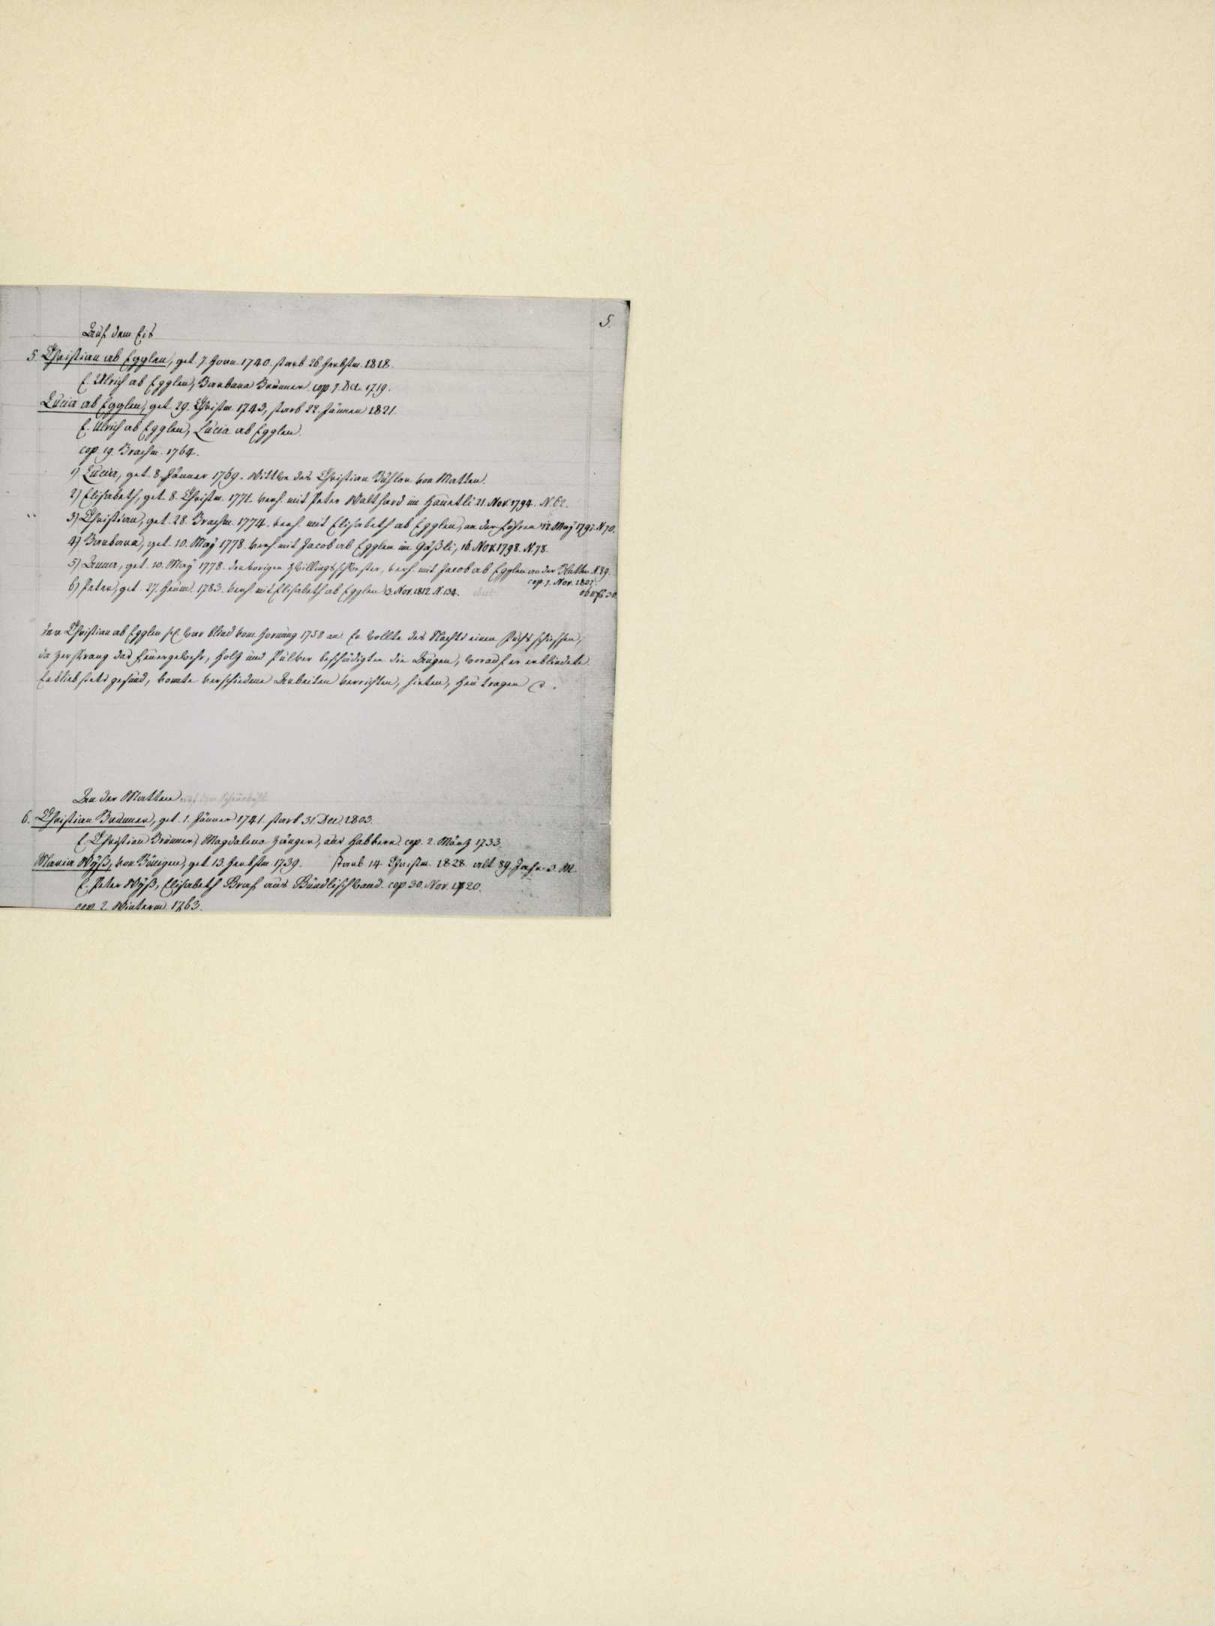 5.
Auf dem Eis
5. Christian ab Egglen, get. 7. Horn. 1740. starb 26. Herbstm. 1818.
E. Ulrich ab Egglen, Barbara Brunner cop. 7. Dec. 1719.
Lucia ab Egglen, get. 29. Christm. 1743, starb 22. Jänner 1821.
E. Ulrich ab Egglen, Lucia ab Egglen.
cop. 19. Brachm. 1764.
1) Lucia, get. 8. Jänner 1769. Wittwe des Christian Bühler von Matten.
2) Elisabeth, get. 8. Christm. 1771. verh. mit Peter Walthard im 21. Nov. 1794. N. 62.
3) Christian, get. 28. Brachm. 1774. verh. mit Elisabeth ab Egglen, an der May 179 N. 70.
4) Barbara, get. 10. May 1778. verh. mit Jacob ab Egglen im Gäßli, 16. Nov. 1798. N. 78.
5) Anna, get. 10. May 1778. der vorigen Zwillingsschwester, verh. mit Jacob ab Egglen an der Matten. N. 89.
cop. 7. Nov. 1801.
6) Peter, get. 27. Heum. 1783. verh. mit Elisabeth ab Egglen 3. Nov. 1812. N. 134.
Der Christian ab Egglen sel. war blind vom Hornung 1758 an. Er wollte des Nachts einen Fuchs schiessen,
da zersprang das Feuergewehr, Holz und Pulver beschädigten die Augen, worauf er erblindete.
Er blieb stets gesund, konnte verschiedene Arbeiten verrichten, hirten, Heu tragen
An der Matten
6. Christian Brunner, get. 1. Jänner 1741. starb 31. Dec. 1803.
E. Christian Brunner, Magdalena Zänger, aus Habkern cop. 2. Märtz 1733.
Maria Wyß, von Bönigen, get. 13. Herbstm. 1739. starb 14. Christm. 1828. alt 89 Jahr 3 M.
E. Peter Wyß, Elisabeth Braf aus Bündlischwand. cop. 30. Nov. 1720.
cop. 2. Winterm. 1763.